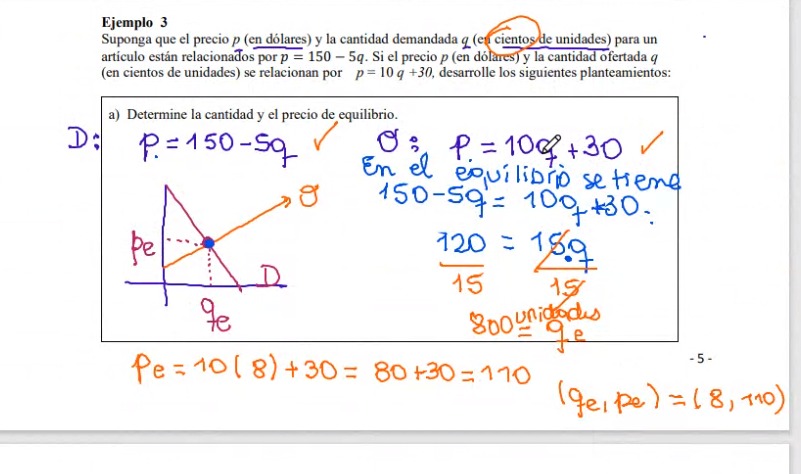 Ejemplo 3
Suponga que el precio p (en dólares) y la cantidad demandada q (en cientos de unidades) para un
artículo están relacionados por p = 150 − 5q. Si el precio p (en dólares) y la cantidad ofertada q
(en cientos de unidades) se relacionan por p = 10 q +30, desarrolle los siguientes planteamientos:
a) Determine la cantidad y el precio de equilibrio.
D: p = 150 - 5q ✓ O: p = 10q + 30 ✓
En el equilibrio se tiene
150 - 5q = 10q + 30:
120 = 15q
15 15
O
pe
D
qe
800 unidades = qe
pe = 10(8) + 30 = 80 + 30 = 110
- 5 -
(qe, pe) = (8, 110)